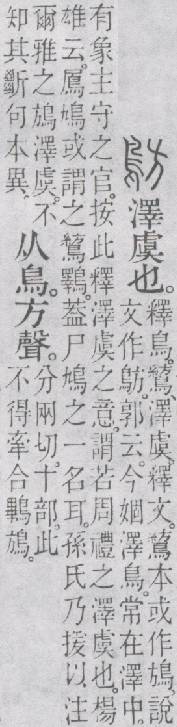 澤虞也。
釋鳥。鶭、澤虞。釋文。鶭本或作鴋。說
文作鴋。郭云。今婟澤鳥。常在澤中。
有象主守之官。按此釋澤虞之意。謂若周禮之澤虞也。楊
雄云。鳸鳩或謂之鶭鸅。葢尸鳩之一名耳。孫氏乃援以注
爾雅之鴋澤虞。不
知其斷何本異、
从鳥。方聲。
分兩切。十部。此
不得牽合鸅鴋。